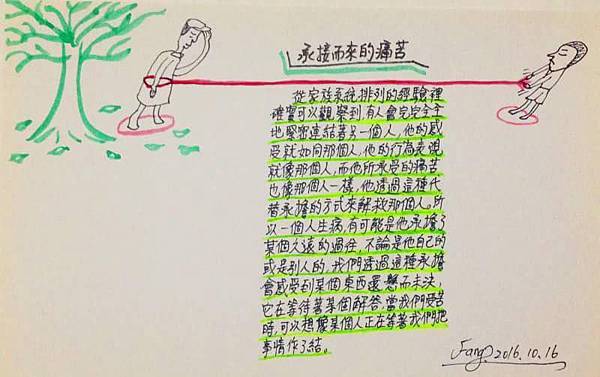 承接而來的痛苦
從家族系統排列的經驗裡
確實可以觀察到,有人會完完全全
地緊密連結著另一個人,他的感
受就如同那個人,他的行為表現
就像那個人,而他所承受的痛苦
也像那個人一樣,他透過這種代
替承擔的方式來解救那個人。所
以一個人生病,有可能是他承擔了
某個久遠的過往,不論是他自己的
或是別人的,我們透過這種承擔
會感受到某個東西還懸而未決,
它在等待著某個解答,當我們受苦
時,可以想像某個人正在等著我們把
事情作了結。
Fang. 2016.10.16